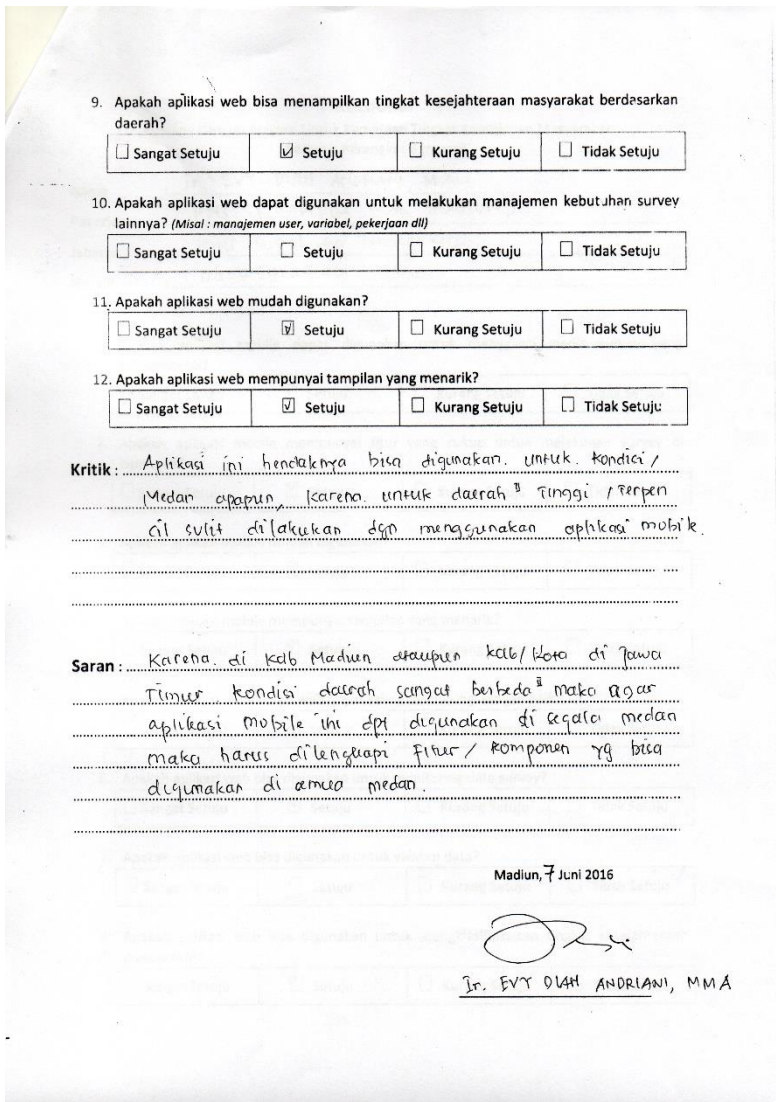 9. Apakah aplikasi web bisa menampilkan tingkat kesejahteraan masyarakat berdasarkan
daerah?
☐ Sangat Setuju ☑ Setuju ☐ Kurang Setuju ☐ Tidak Setuju
10. Apakah aplikasi web dapat digunakan untuk melakukan manajemen kebutuhan survey
lainnya? (Misal : manajemen user, variabel, pekerjaan dll)
☐ Sangat Setuju ☐ Setuju ☐ Kurang Setuju ☐ Tidak Setuju
11. Apakah aplikasi web mudah digunakan?
☐ Sangat Setuju ☑ Setuju ☐ Kurang Setuju ☐ Tidak Setuju
12. Apakah aplikasi web mempunyai tampilan yang menarik?
☐ Sangat Setuju ☑ Setuju ☐ Kurang Setuju ☐ Tidak Setuju
Kritik : Aplikasi ini hendaknya bisa digunakan. untuk. kondisi /
Medan apapun, karena. untuk daerah II Tinggi / Terpen
cil sulit dilakukan dgn menggunakan aplikasi mobile.
Saran : Karena. di Kab Madiun ataupun kab/Kota di Jawa
Timur kondisi daerah sangat berbeda II maka agar
aplikasi mobile ini dpt digunakan di segala medan
maka harus dilengkapi fitur / komponen yg bisa
digunakan di medan.
Madiun, 7 Juni 2016
Ir. EVY DIAH ANDRIANI, MMA